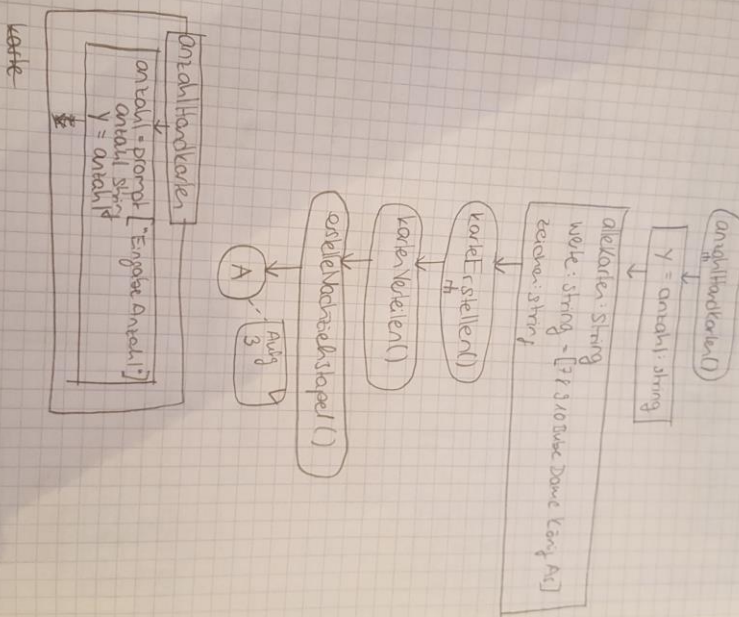 anzahlHandkarten()
y = anzahl: string
allekarten: string
werte: string = [7 8 9 10 Bube Dame König As]
zeichen: string
karteErstellen()
kartenVerteilen()
erstelleNachziehstapel()
A
Aufg
3
anzahlHandkarten
anzahl = prompt ["Eingabe Anzahl"]
anzahl string
y = anzahl
karte